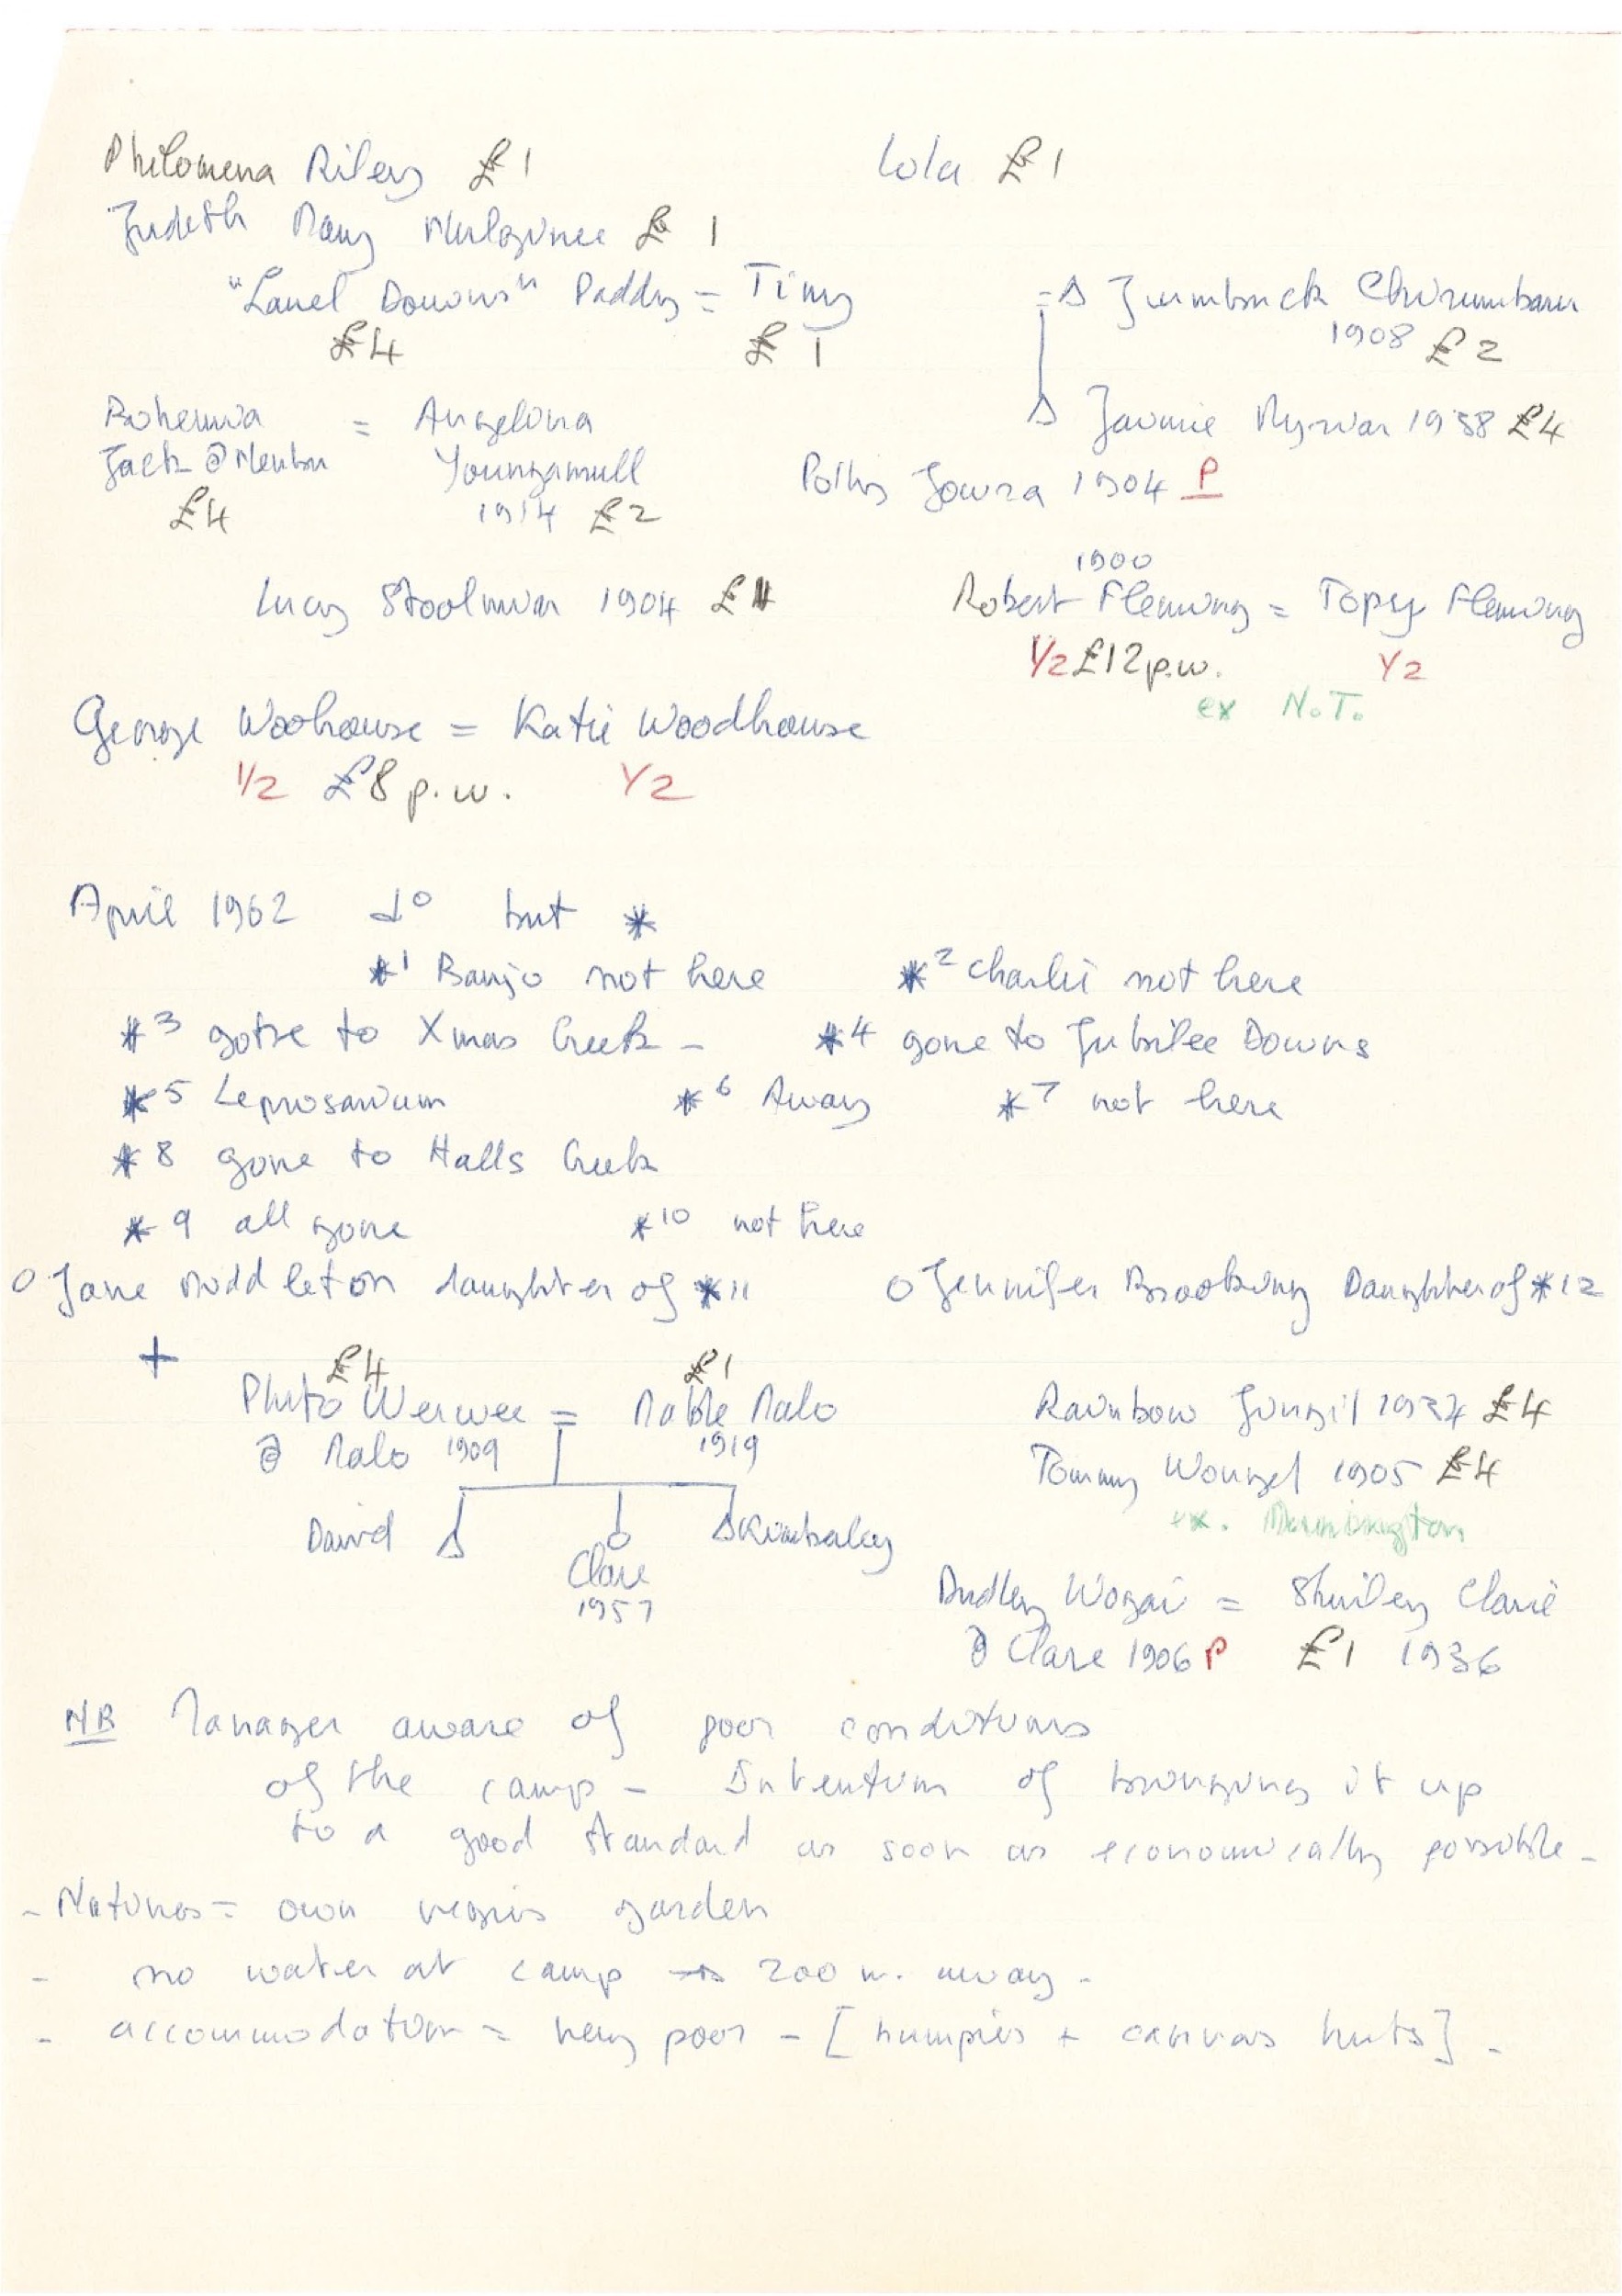 Philomena Riley £1 Lola £1
Judith Mary £1
"Lanel Downs" Paddy = Tiny
£4 £1
= Δ Jumbuck
1908 £2
Δ 1938 £4
Bohemia = Angelina
Jack @ Youngamull
£4 1914 £2
Polly Jowra 1904 P
Lucy 1904 £1
1900
Robert Fleming = Topsy Fleming
1/2 £12 p.w. 1/2
ex N.T.
George Woohouse = Katie Woodhouse
1/2 £8 p.w. 1/2
April 1962 do but *
*1 Banjo not here *2 Charlie not here
*3 gone to Xmas Creek - *4 gone to Jubilee Downs
*5 Leprosarium *6 Away *7 not here
*8 gone to Halls Creek
*9 all gone *10 not here
O Jane Middleton daughter of *11 O Jennifer Brooking Daughter of *12
+
£4 £1
Pluto Werwee = Mable Malo
@ Malo 1909 1919
Rainbow £4
Tommy 1905 £4
ex.
David Δ O Δ Kimberley
Clare
1957
Dudley Wogai = Shirley Clare
@ Clare 1906 P £1 1936
NB Manager aware of poor conditions
of the camp - Intention of bringing it up
to a good standard as soon as economically possible -
- Natives = own vegies garden
- no water at camp → 200 m. away -
- accommodation = very poor - [humpies + canvas huts] -